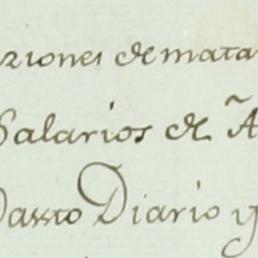 ziones de mata
Salarios de A
Gasto Diario y